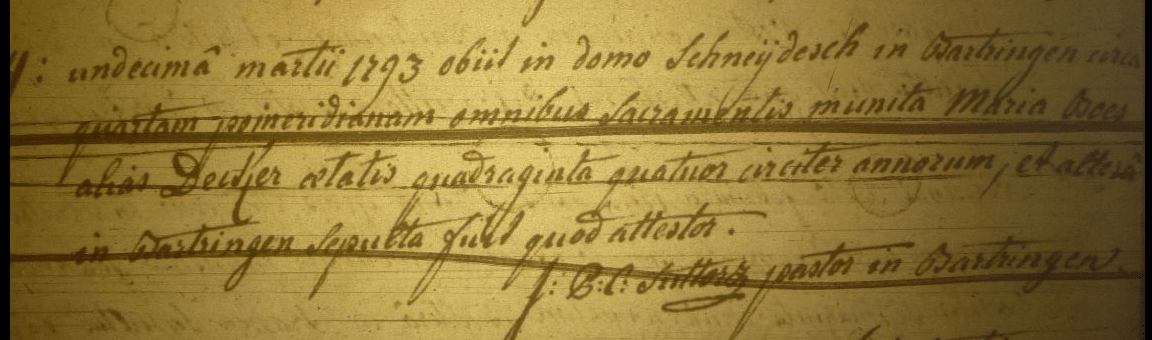 undecimâ martii 1793 obiit in domo Schneijdesch in Bartringen circa
quartam pomeridianam omnibus sacramentis munita Maria Bees
alias Decker ætatis quadraginta quatuor circiter annorum, et alterâ
in Bartringen sepulta fuit quod attestor.
J: B: C: pastor in Bartringen